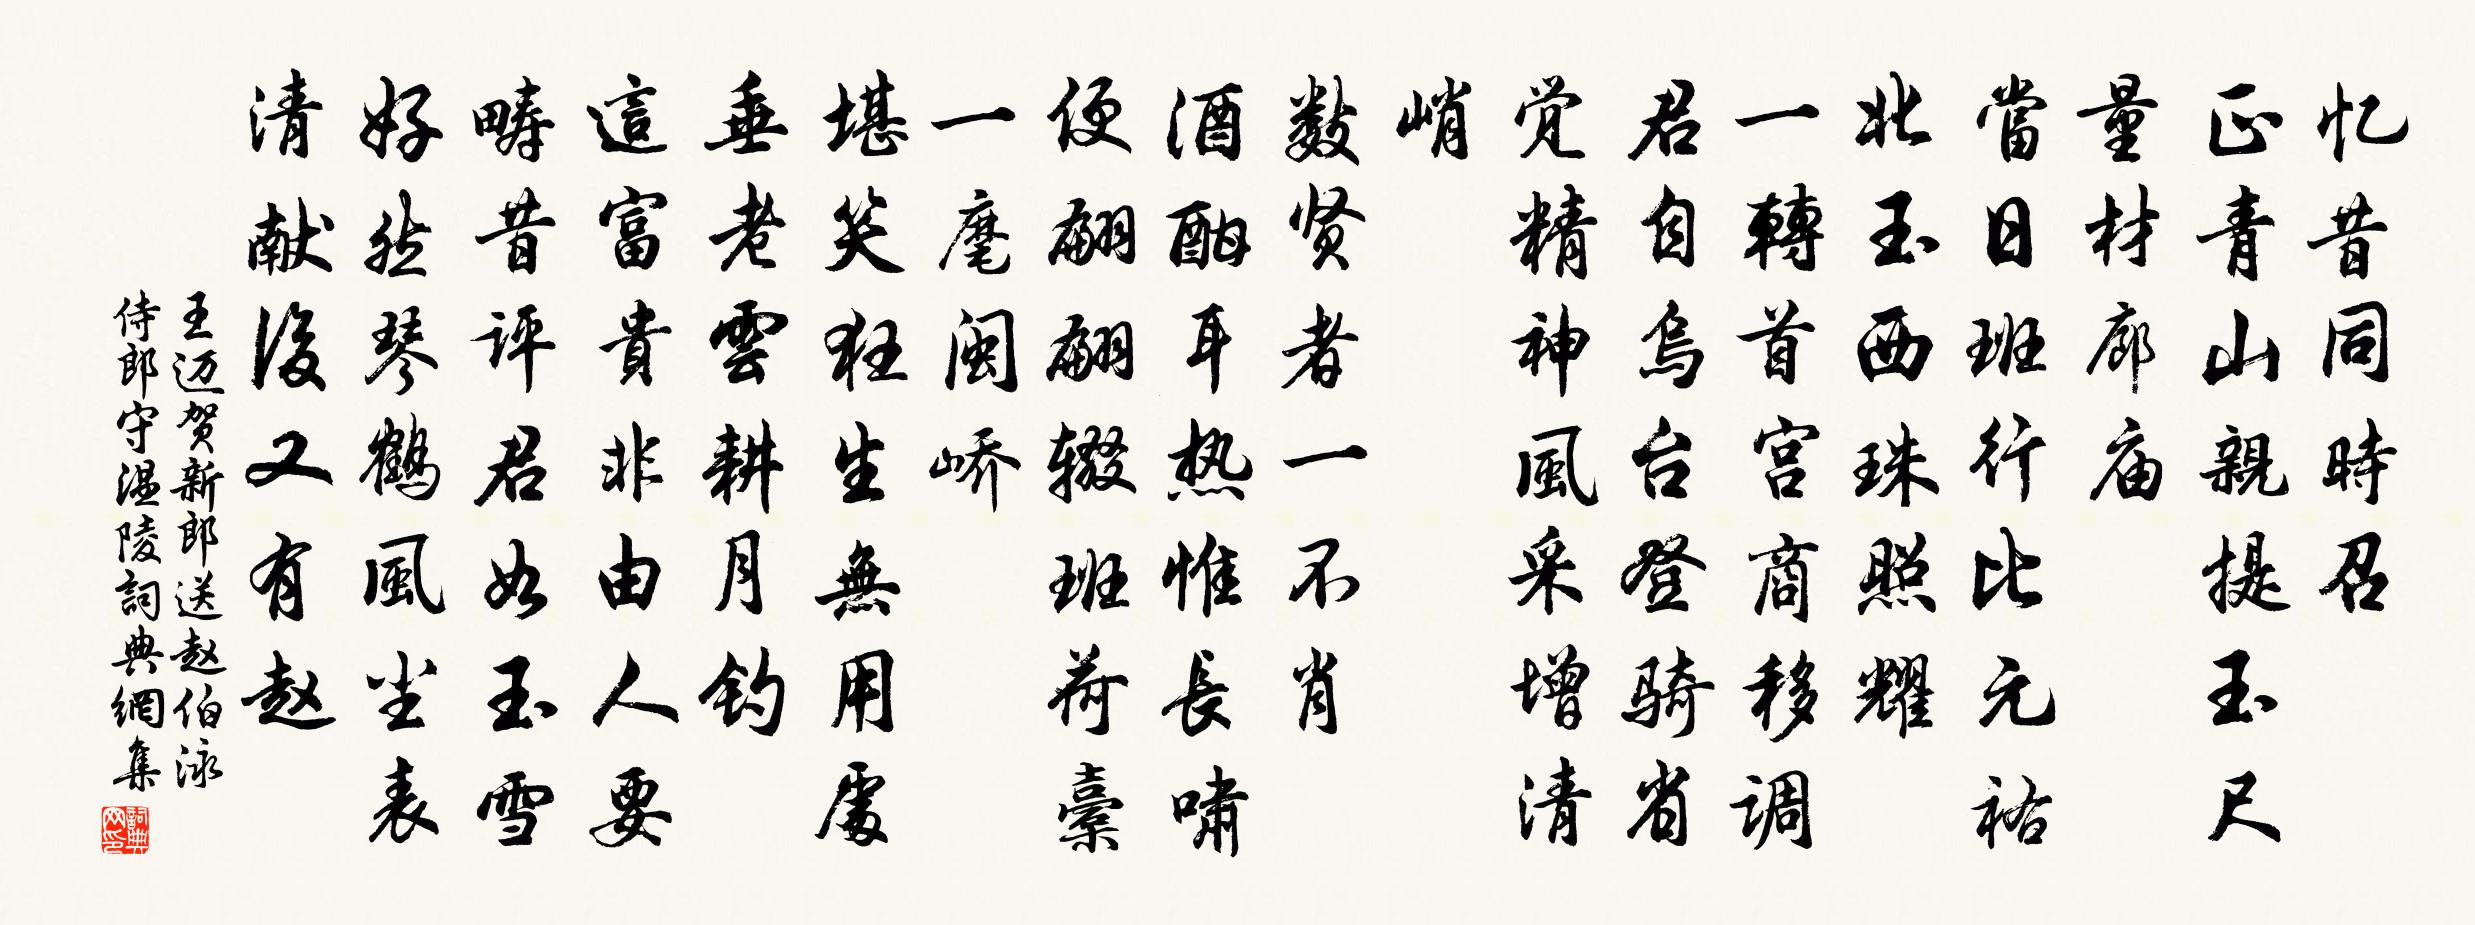 忆昔同時召
正青山親提玉尺
量材廊庙
當日班行比元祐
北玉西珠照耀
一轉首宫商移调
君自烏台登骑省
觉精神風采增清
峭
数贤者一不肖
酒酣耳热惟長啸
便翩翩辍班荷橐
一麾闽峤
堪笑狂生無用處
垂老雲耕月钓
這富貴非由人要
畴昔评君如玉雪
好然琴鶴風尘表
清献後又有赵
王迈贺新郎送赵伯泳
侍郎守温陵詞典網集
詞典网印